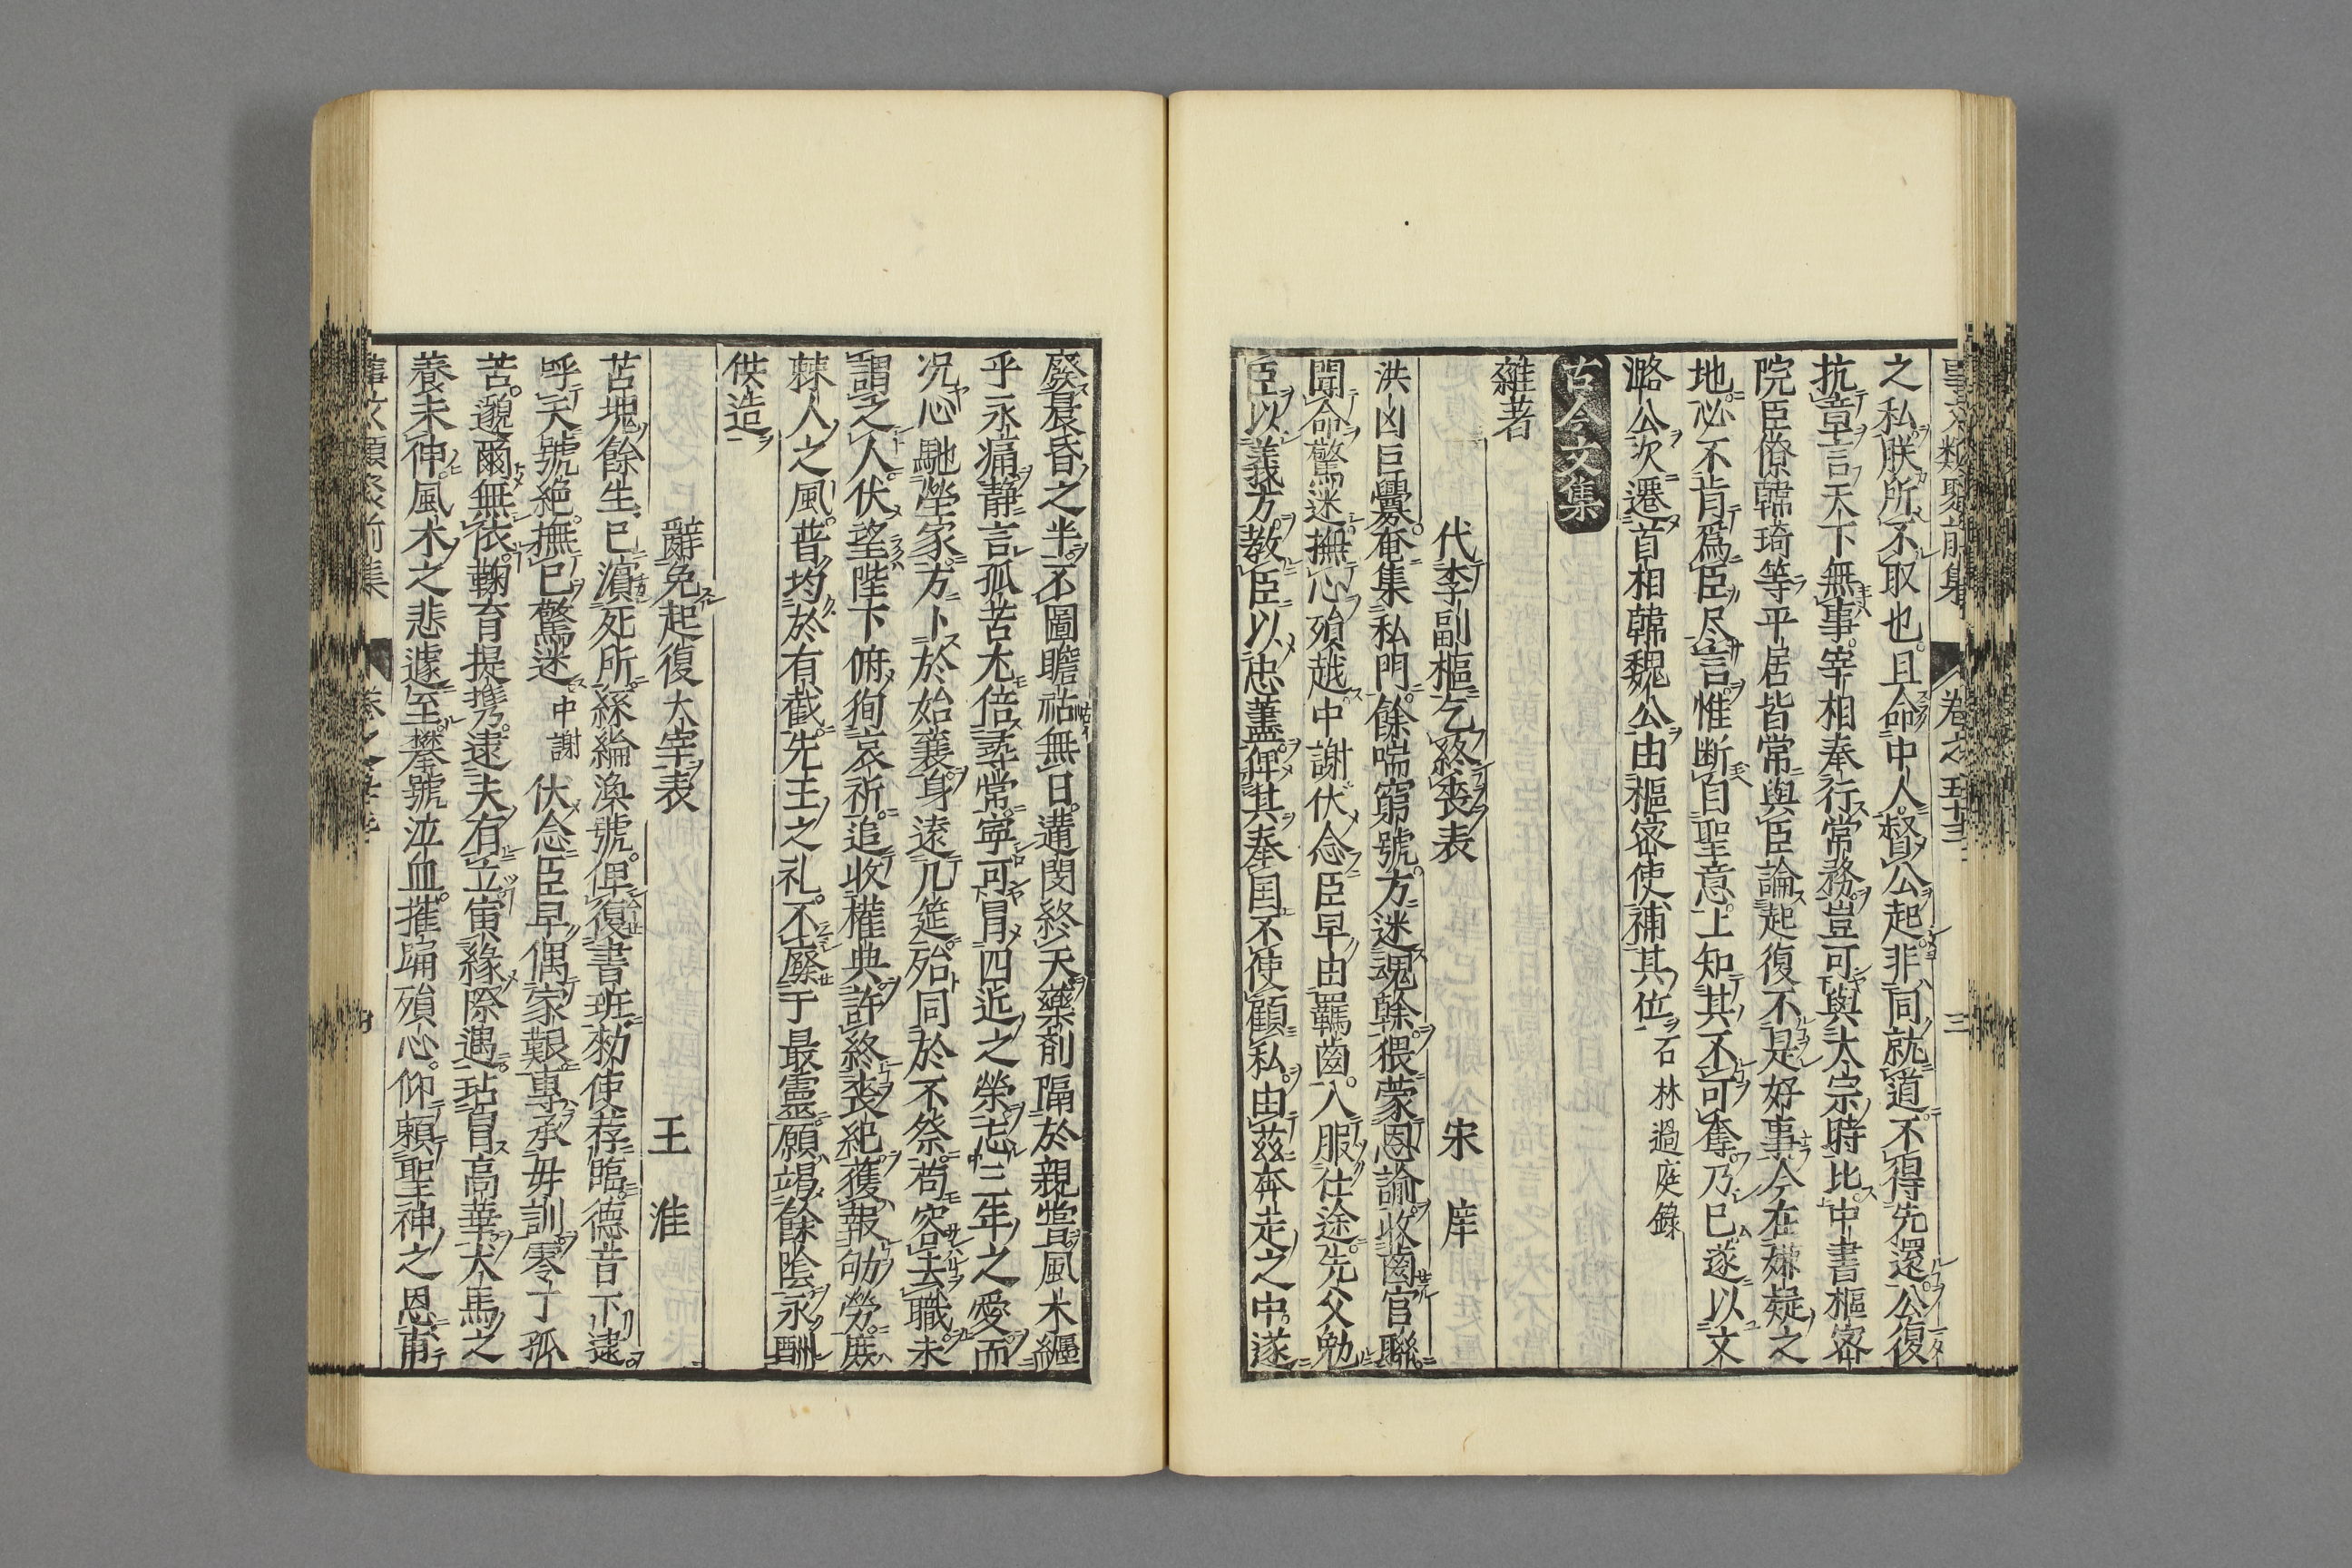 事文類聚前集 卷之五十三 三
之私朕所不取也且命中人督公起非同就道不得先還公復
抗章言天下無事宰相奉行常務豈可與太宗時比中書樞密
院臣僚韓琦等平居皆常與臣論起復不是好事今在嫌疑之
地必不肯爲臣尽言惟断自聖意上知其不可奪乃已遂以文
潞公次遷首相韓魏公由樞密使補其位石林過庭錄
古今文集
雜著
代李副樞乞終喪表 宋庠
洪凶巨釁奄集私門餘喘窮號方迷魂幹猥蒙恩諭收齒官聯
聞命驚迷撫心殞越中謝伏念臣早由羈齒入服仕途先父勉
臣以義方教臣以忠藎俾其奉国不使顧私由茲奔走之中遂
廢晨昏之半不圖瞻祜無日遘閔終天藥剤隔於親嘗風木纏
乎永痛静言孤苦尤倍尋常寧可冒四近之榮忘三年之愛而
况心馳塋家方卜於始襄身遠几筵殆同於不祭苟容去職未
謂之人伏望陛下俯徇哀祈追收權典許終喪紀獲報劬勞庶
棘人之風普均於有截先王之礼不廢于最靈願竭餘陰永酬
佚造
辭免起復大宰表 王淮
苫塊餘生已濵死所絲綸渙號俾復書班勑使荐臨德音下逮
呼天號絶撫已驚迷中謝伏念臣早偶家艱專承毋訓零丁孤
苦邈爾無依鞠育提携逮夫有立寅緣際遇玷冒高華犬馬之
養未伸風木之悲遽至攀號泣血摧踊殞心仰頼聖神之恩甫